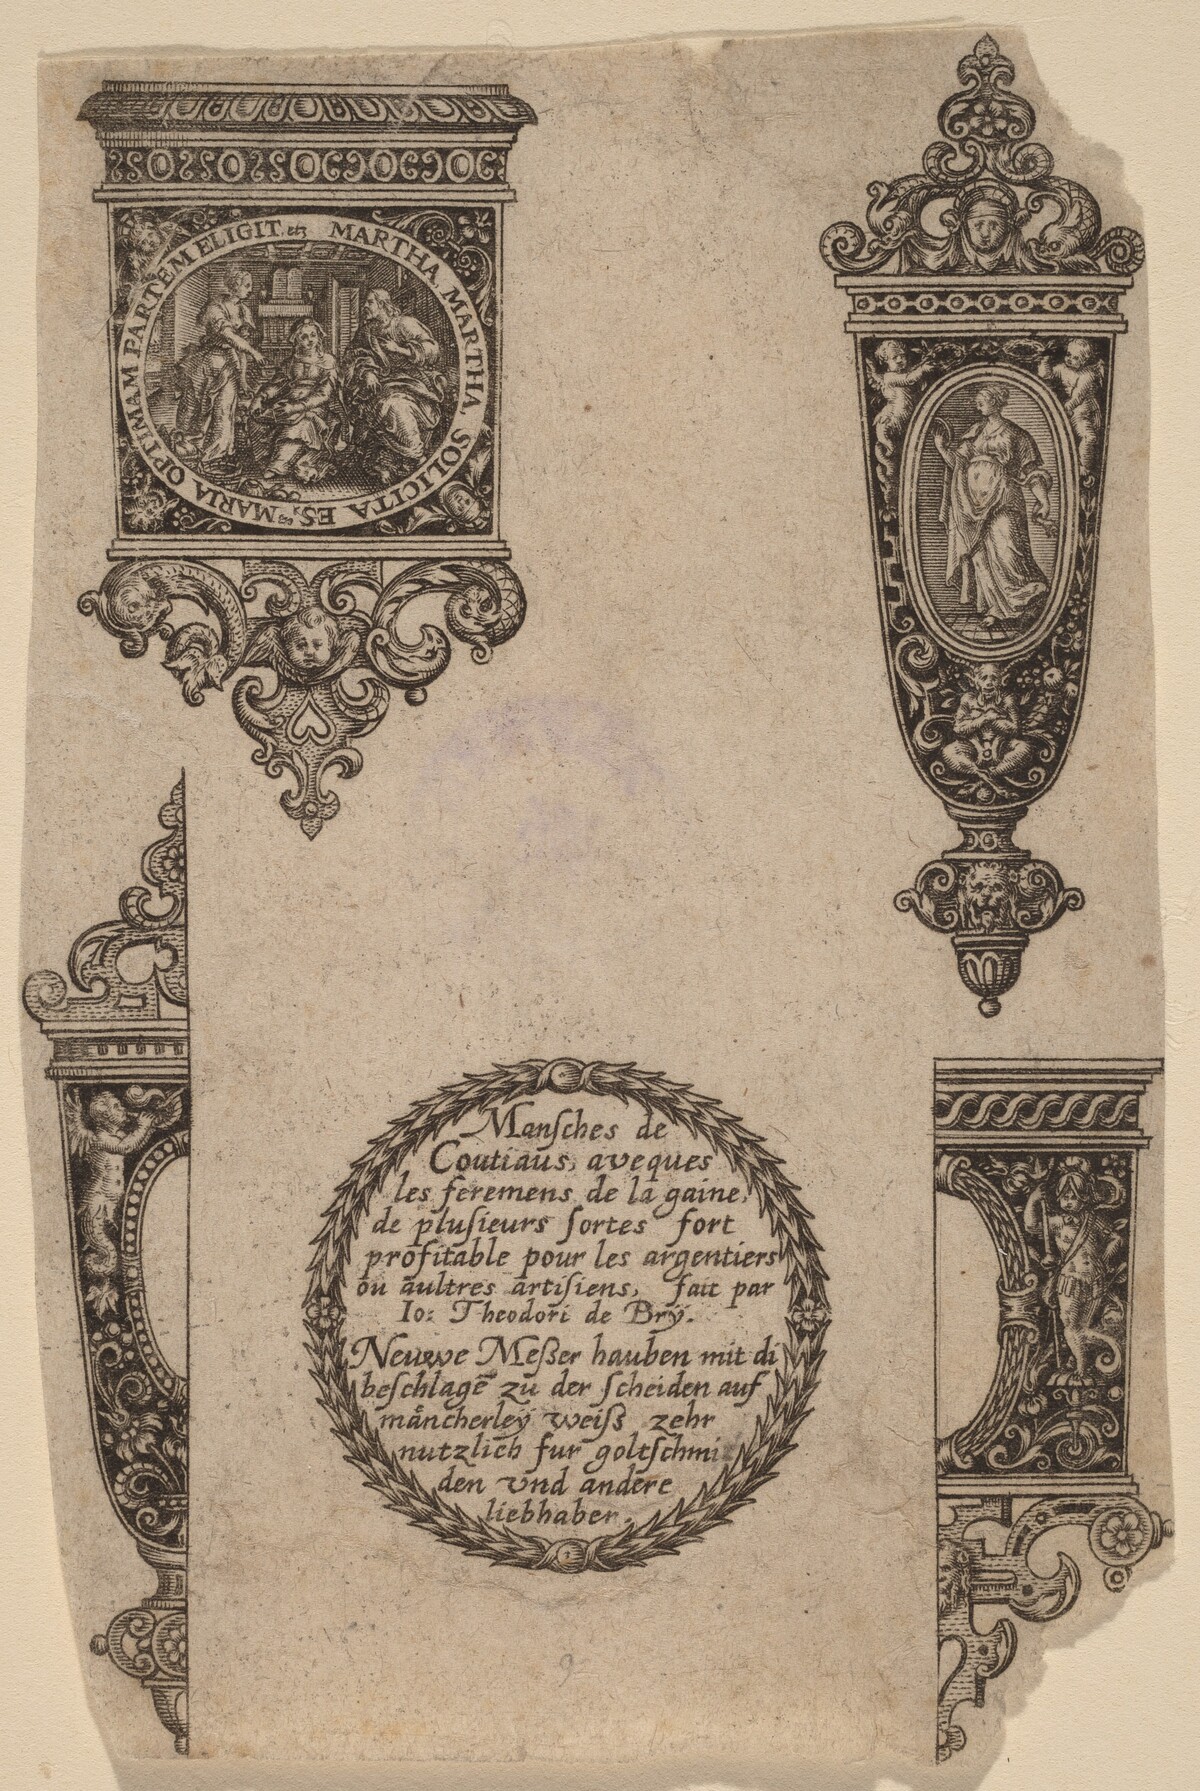 MARTHA, MARTHA, SOLICITA ES, MARIA OPTIMAM PARTEM ELIGIT. etz
Manſches de
Coutiaus, aveques
les feremens de la gaine,
de pluſieurs ſortes fort
profitable pour les argentiers
ou aultres artiſiens, fait par
Io: Theodori de Brÿ.
Neuwe Meßer hauben mit di
beſchlagē zu der ſcheiden auf
mancherleÿ weiſß zehr
nutzlich fur goltſchmi
den vnd andere
liebhaber.
9